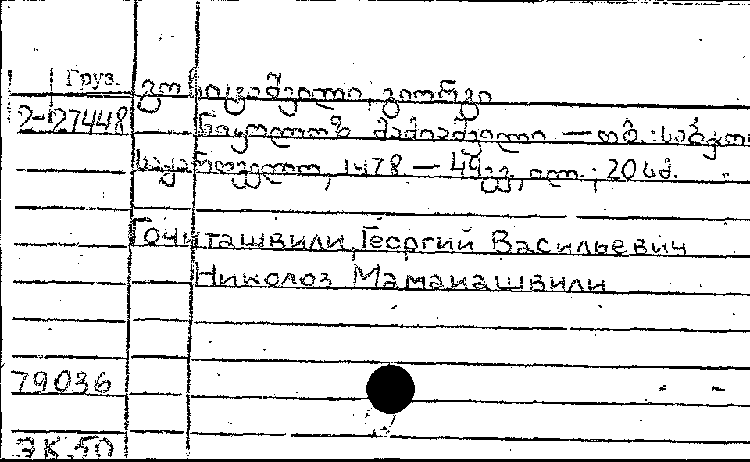 Груз. გოჩიტაშვილი, გიორგი
2-27448 ნიკოლოზ მამაიაშვილი — თბ.: საბჭოთა
საქართველო, 1978 — 49გვ., ილ.; 20სმ.
Гочиташвили, Георгий Васильевич
Николоз Мамаиашвили
79036
ЭК.50